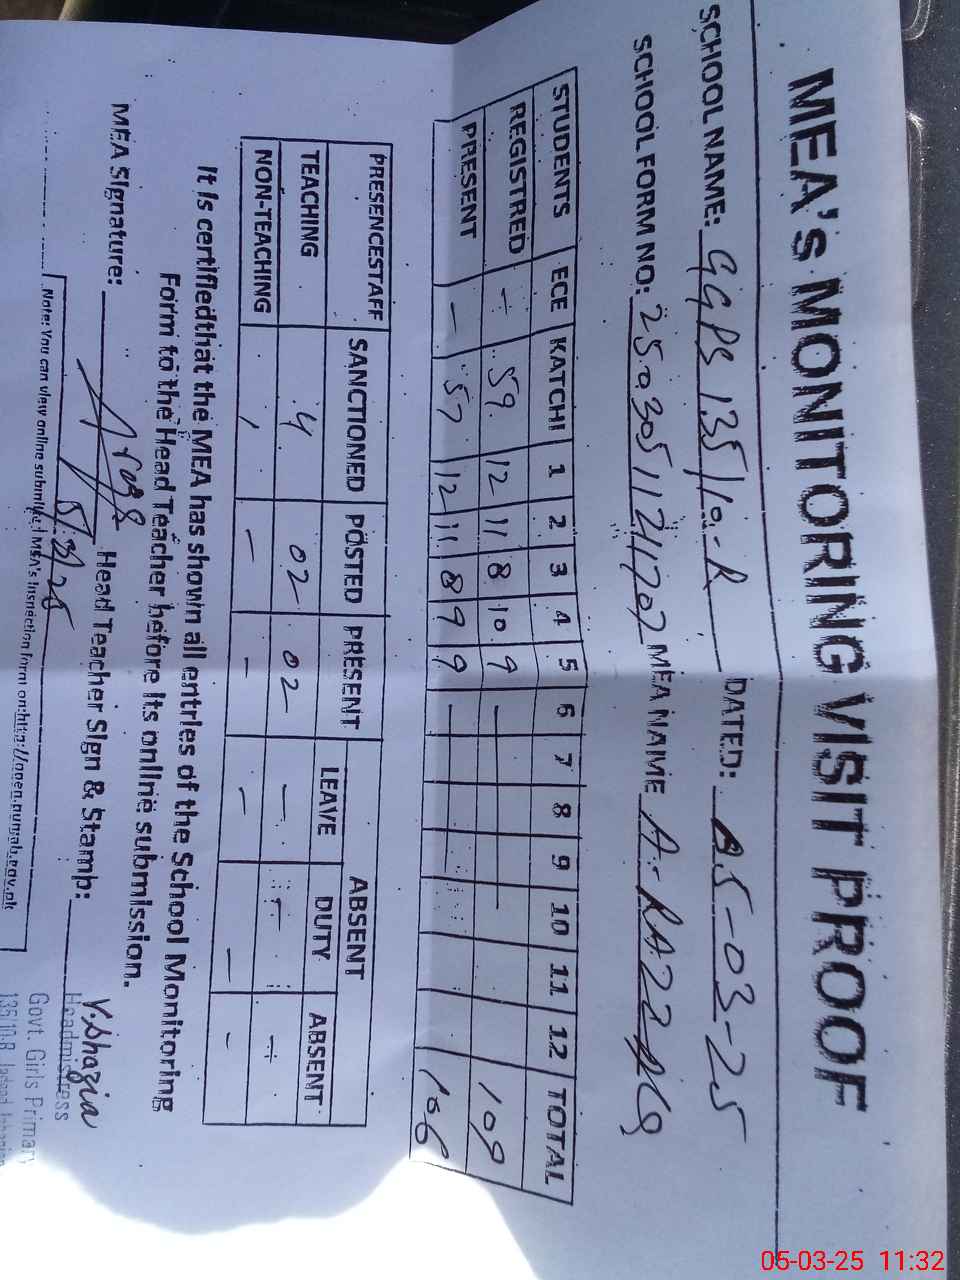 MEA's MONITORING VISIT PROOF
SCHOOL NAME: GGPS 135/10-R DATED: 05-03-25
SCHOOL FORM NO: 25030511241707 MEA NAME A. RAZZAQ
STUDENTS ECE KATCHI 1 2 3 4 5 6 7 8 9 10 11 12 TOTAL
REGISTRED - 59 12 11 8 10 9 - 109
PRESENT - 57 12 11 8 9 9 - 106
PRESENCESTAFF SANCTIONED POSTED PRESENT ABSENT
LEAVE DUTY ABSENT
TEACHING 4 02 02 - - -
NON-TEACHING - - - - - -
It is certifiedthat the MEA has shown all entries of the School Monitoring
Form to the Head Teacher before its online submission.
MEA Signature: Head Teacher Sign & Stamp: V.Shazia
5/3/25
Headmistress
Govt. Girls Primary
135/10-R
Note: You can view online submitted MEA's Inspection form on:http://open.punjab.gov.pk
05-03-25 11:32